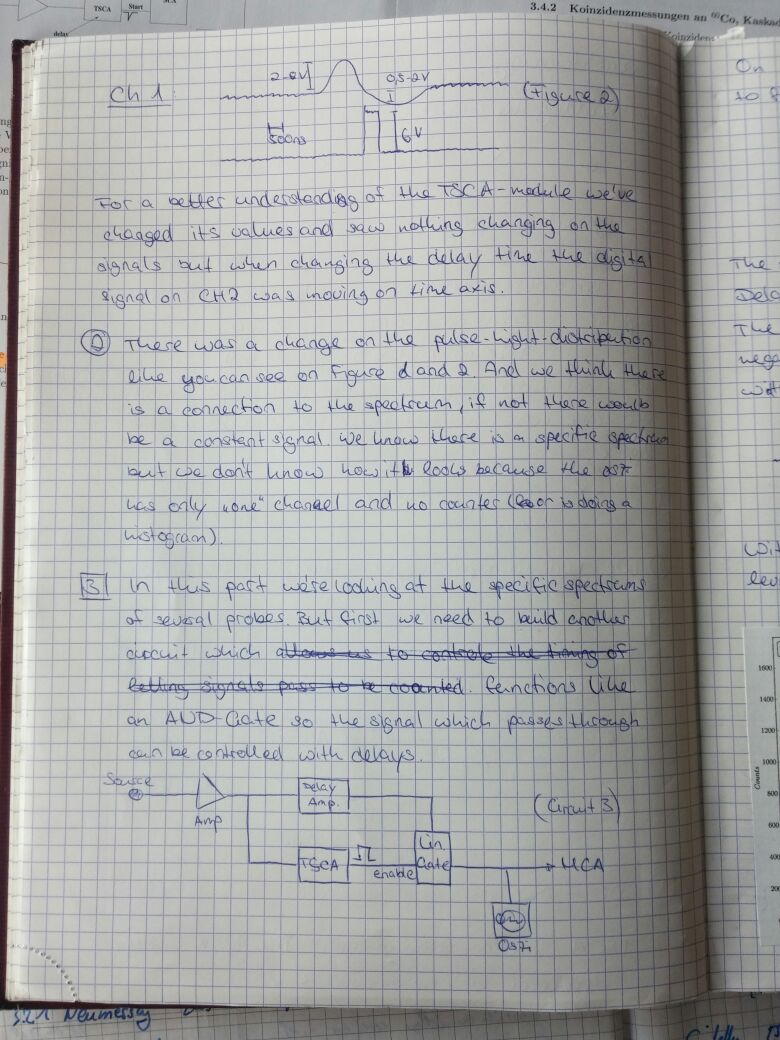 TSCA
Start
delay
3.4.2 Koinzidenzmessungen an ⁶⁰Co, Kaskad
Koinzidens
Ch 1
2-8V
0,5-2V
(Figure 2)
500ns
6V
For a better understanding of the TSCA-module we've
changed its values and saw nothing changing on the
signals but when changing the delay time the digital
signal on CH2 was moving on time axis.
There was a change on the pulse-hight-distribution
like you can see on Figure 1 and 2. And we think there
is a connection to the spectrum, if not there would
be a constant signal. We know there is a specific spectrum
but we don't know how it looks because the oszi
has only "one" channel and no counter (or is doing a
histogram).
3 In this part we're looking at the specific spectrums
of several probes. But first we need to build another
circuit which allows us to controle the timing of
letting signals pass to be counted. functions like
an AND-Gate so the signal which passes through
can be controlled with delays.
Source
Amp
Delay
Amp.
(Circuit 3)
TSCA
enable
Lin.
Gate
MCA
Oszi
3.2.1 Neumessung
On
to
The
Delo
The
nega
wit
Wit
lev
1600
1400
1200
1000
800
600
400
200
Counts